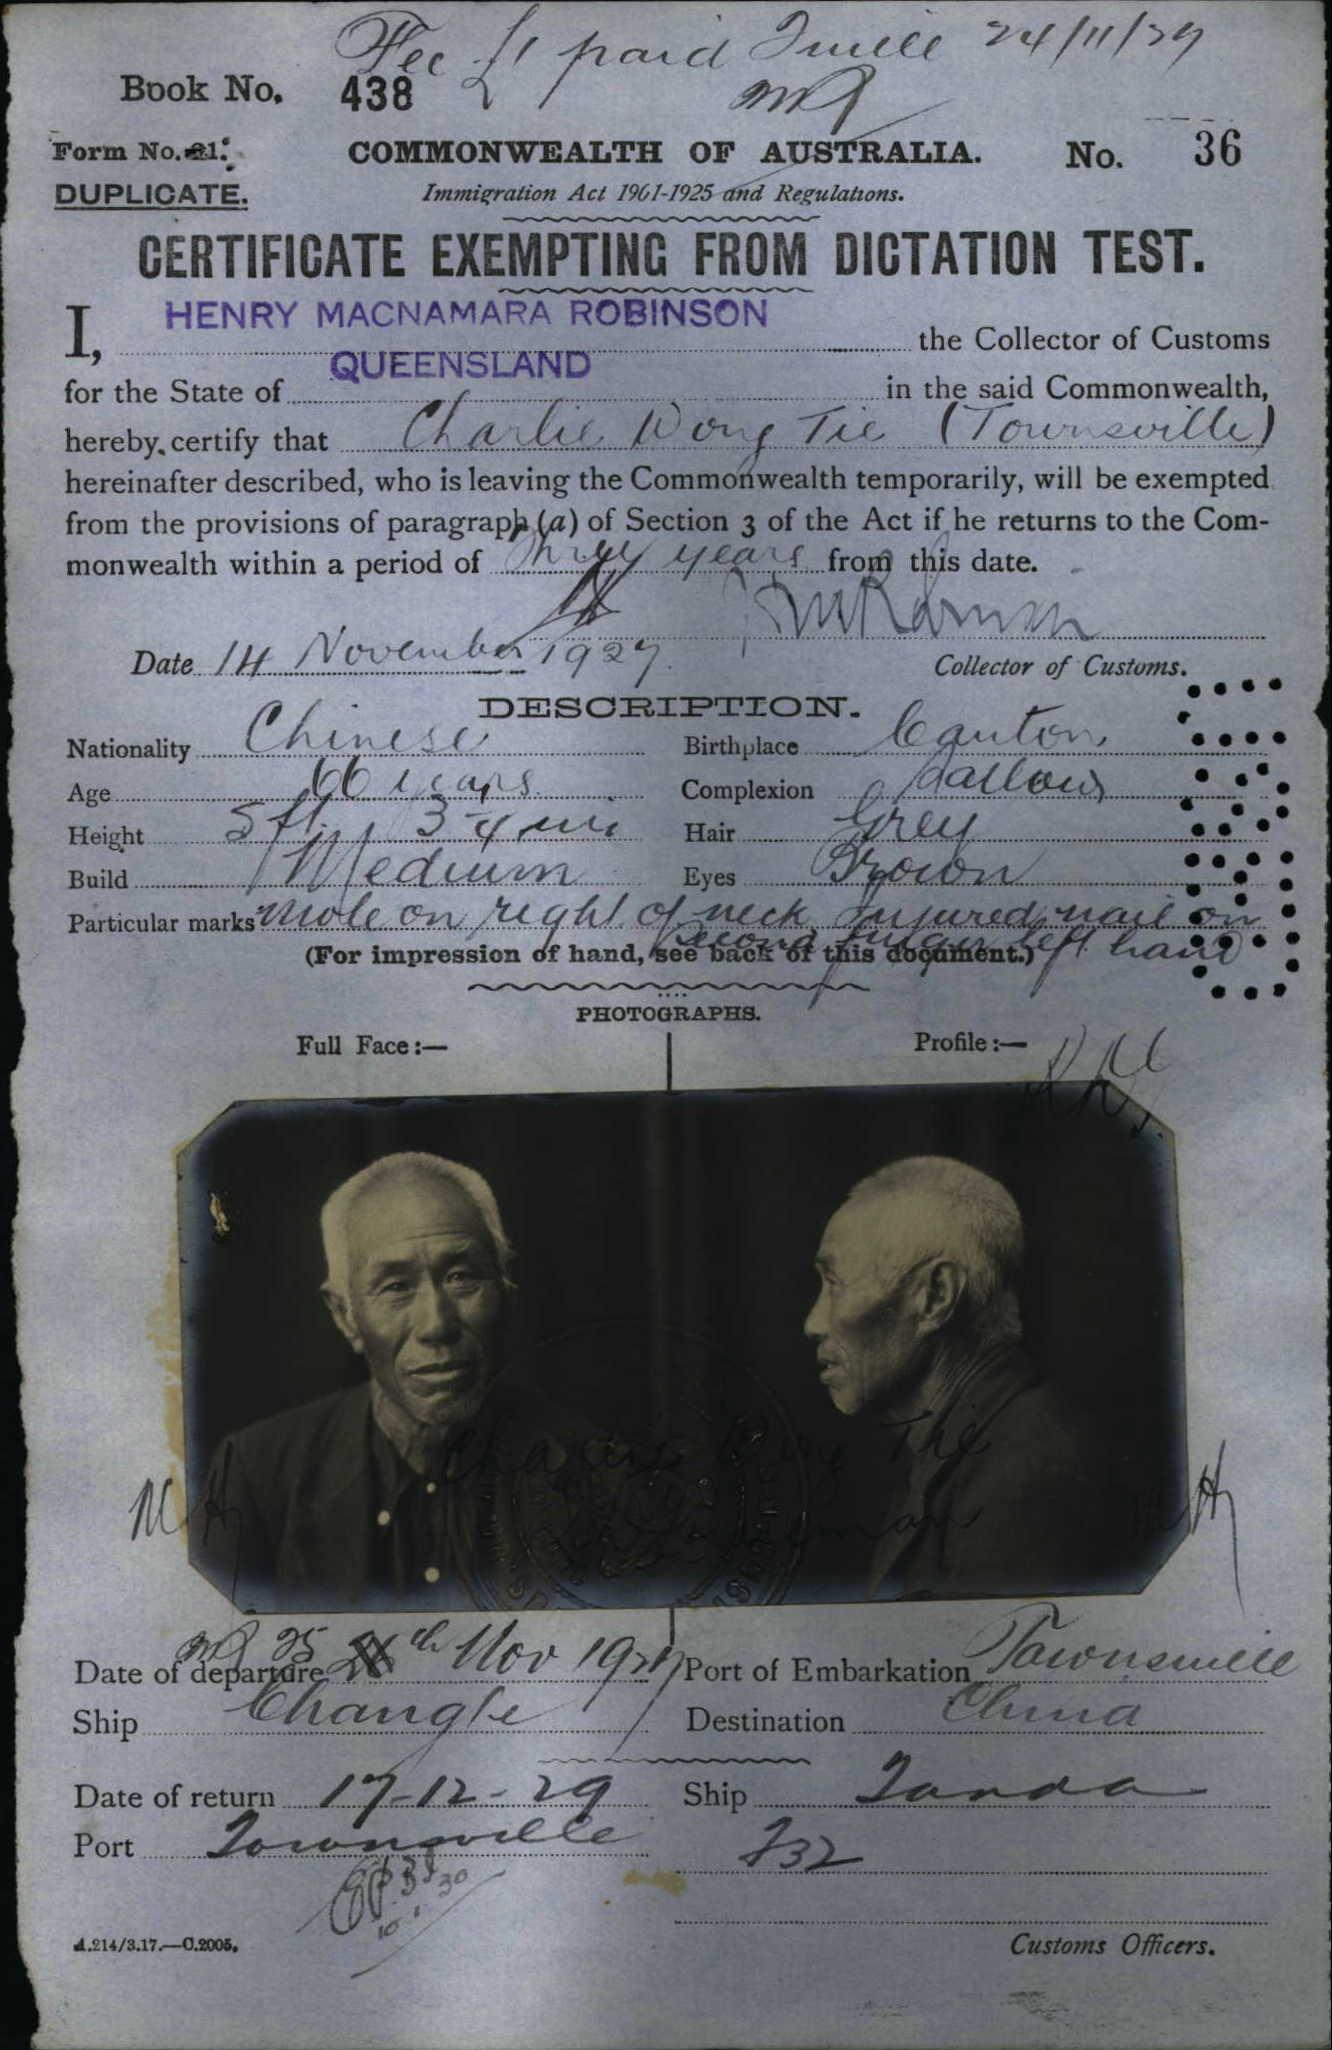 Fee £1 paid Tville 24/11/27
Book No. 438
Form No. 21.
COMMONWEALTH OF AUSTRALIA.
No. 36
DUPLICATE.
Immigration Act 1901-1925 and Regulations.
CERTIFICATE EXEMPTING FROM DICTATION TEST.
I, HENRY MACNAMARA ROBINSON the Collector of Customs
for the State of QUEENSLAND in the said Commonwealth,
hereby certify that Charlie Wong Tie (Townsville)
hereinafter described, who is leaving the Commonwealth temporarily, will be exempted
from the provisions of paragraph (a) of Section 3 of the Act if he returns to the Com-
monwealth within a period of Three years from this date.
Date 14 November 1927.
Collector of Customs.
DESCRIPTION.
Nationality Chinese Birthplace Canton
Age 66 years Complexion Sallow
Height 5 ft 3¼ ins Hair Grey
Build Medium Eyes Brown
Particular marks Mole on right of neck, Injured nail on
second finger left hand
(For impression of hand, see back of this document.)
PHOTOGRAPHS.
Full Face :—
Profile :—
Charlie Wong Tie
Date of departure 25th Nov 1927 Port of Embarkation Townsville
Ship Changte Destination China
Date of return 17-12-29 Ship Tanda
Port Townsville
10.1.30
A.214/3.17.—C.2005.
Customs Officers.